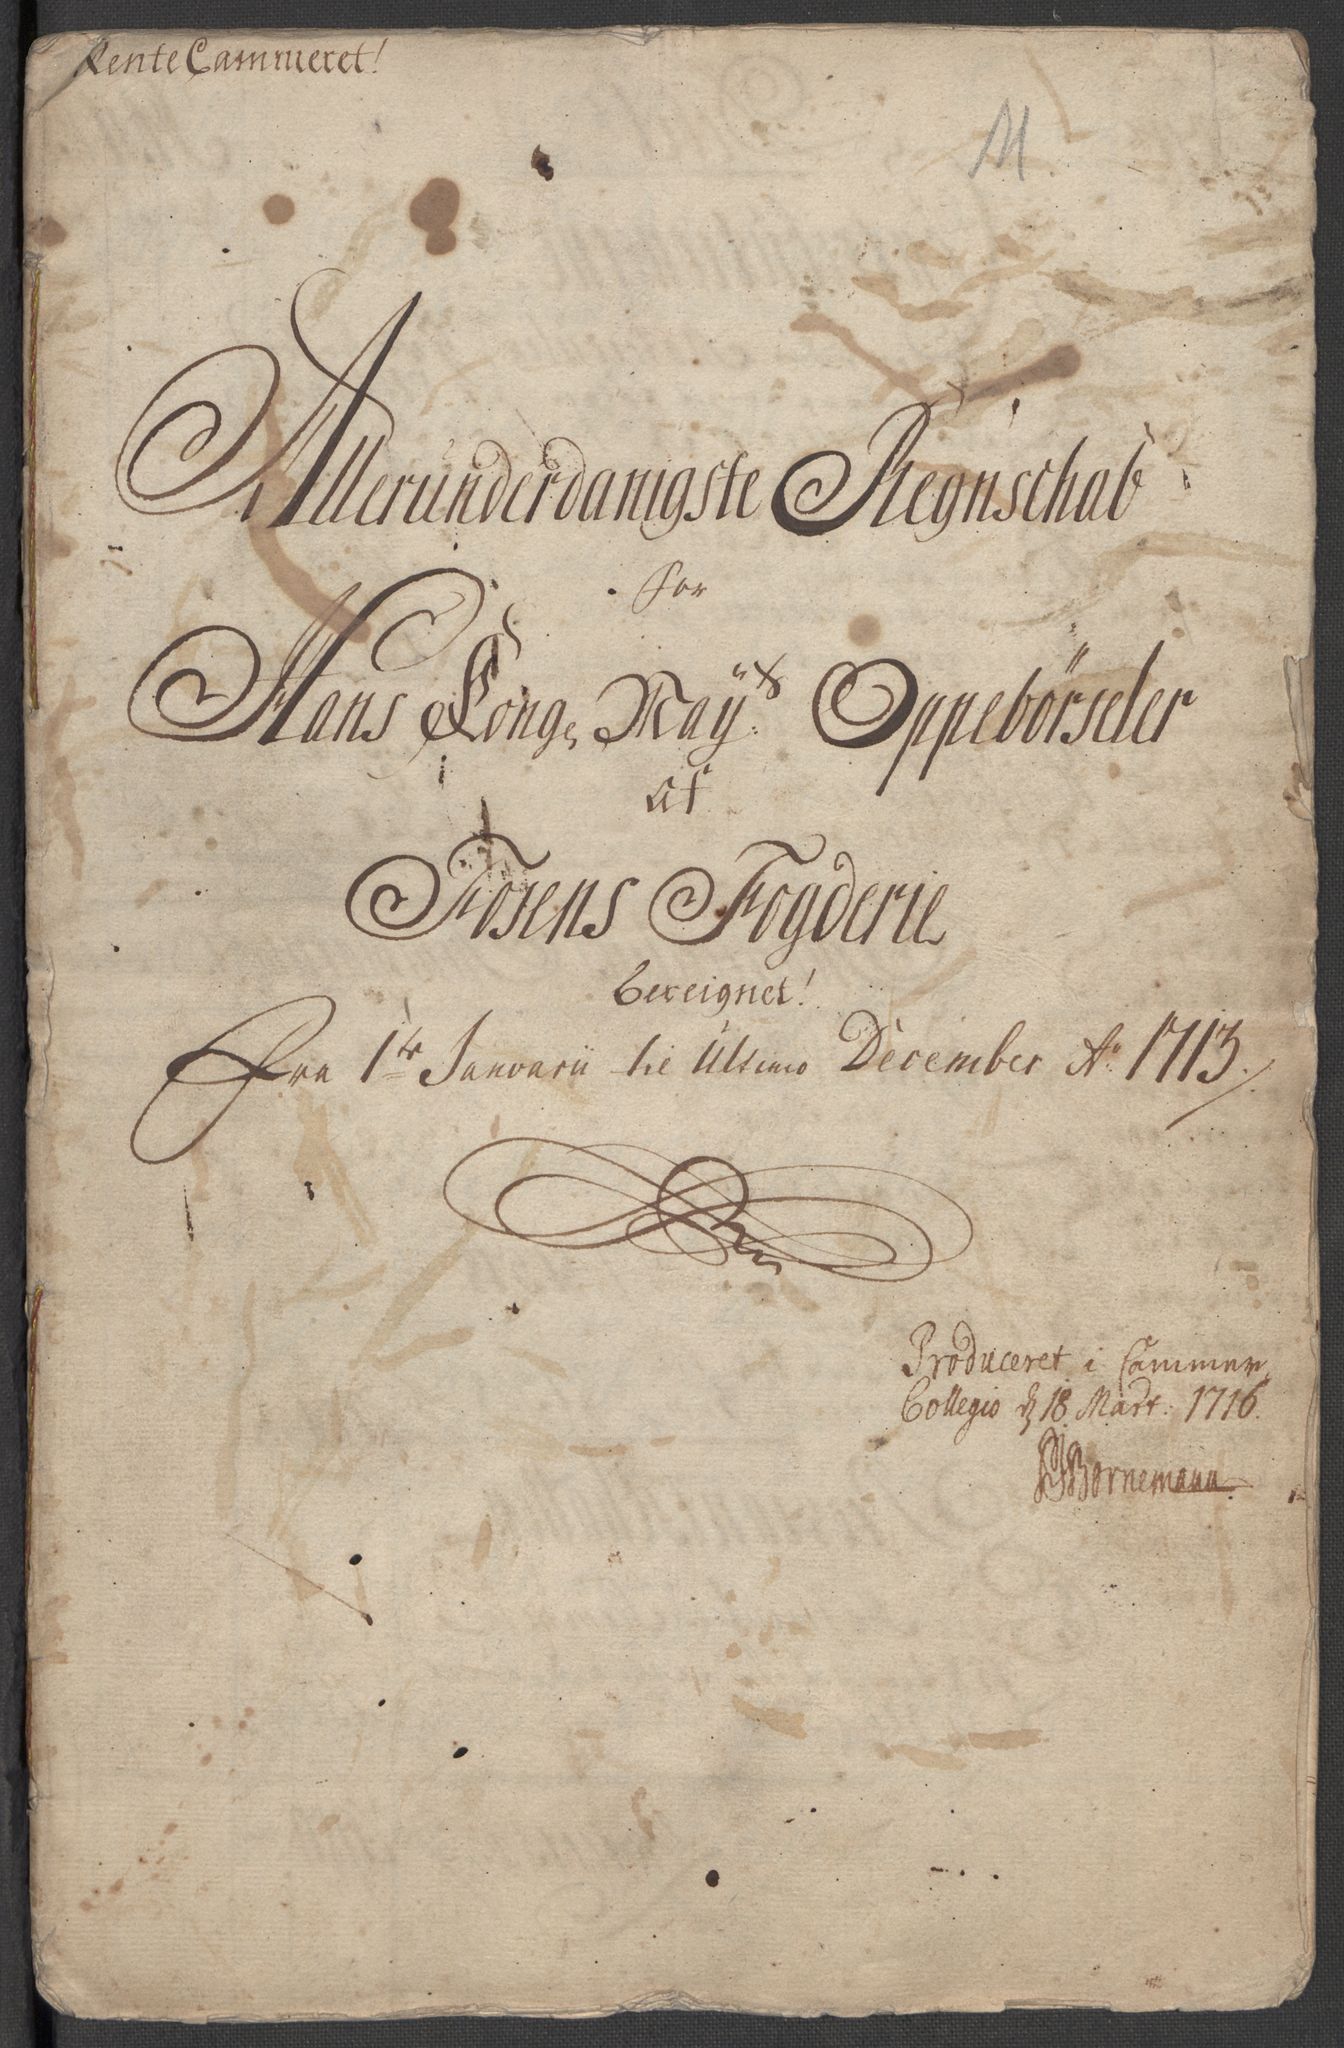 RenteCammeret!
M
Allerunderdanigste Regnschab
for
Hans Kong. Mayts Oppebörseler
af
Fosens Fogderie
bereignet!
Fra 1te Januarii til Ultimo December Ao 1713.
Produceret i Cammer
Collegio d 18 Mart. 1716.
Bornemann.